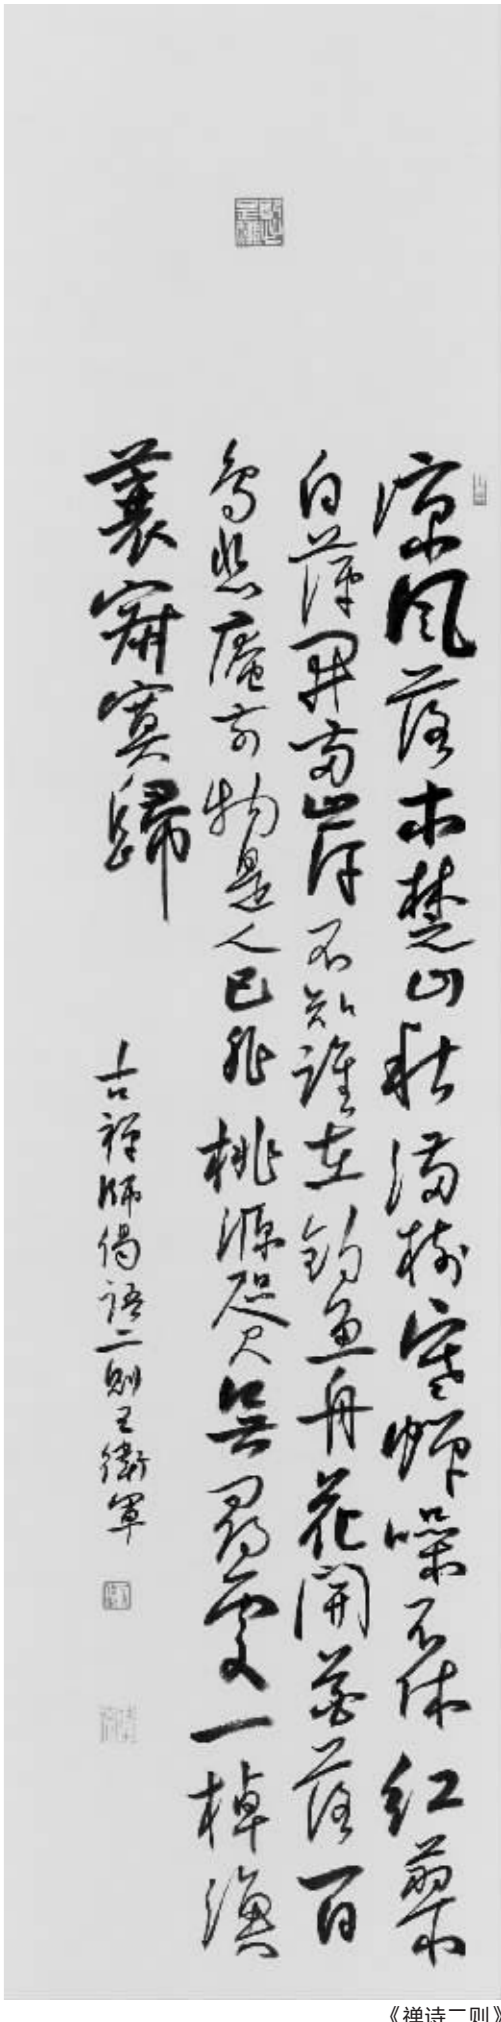 凉风落木楚山秋满树寒蝉噪不休红蓼
白蘋开两岸不知谁在钓鱼舟花開花落百
鸟悲庵前物是人已非桃源咫尺無尋處一棹漁
蓑寂寞歸
古禅师偈语二则王衛军
《禅诗二则》